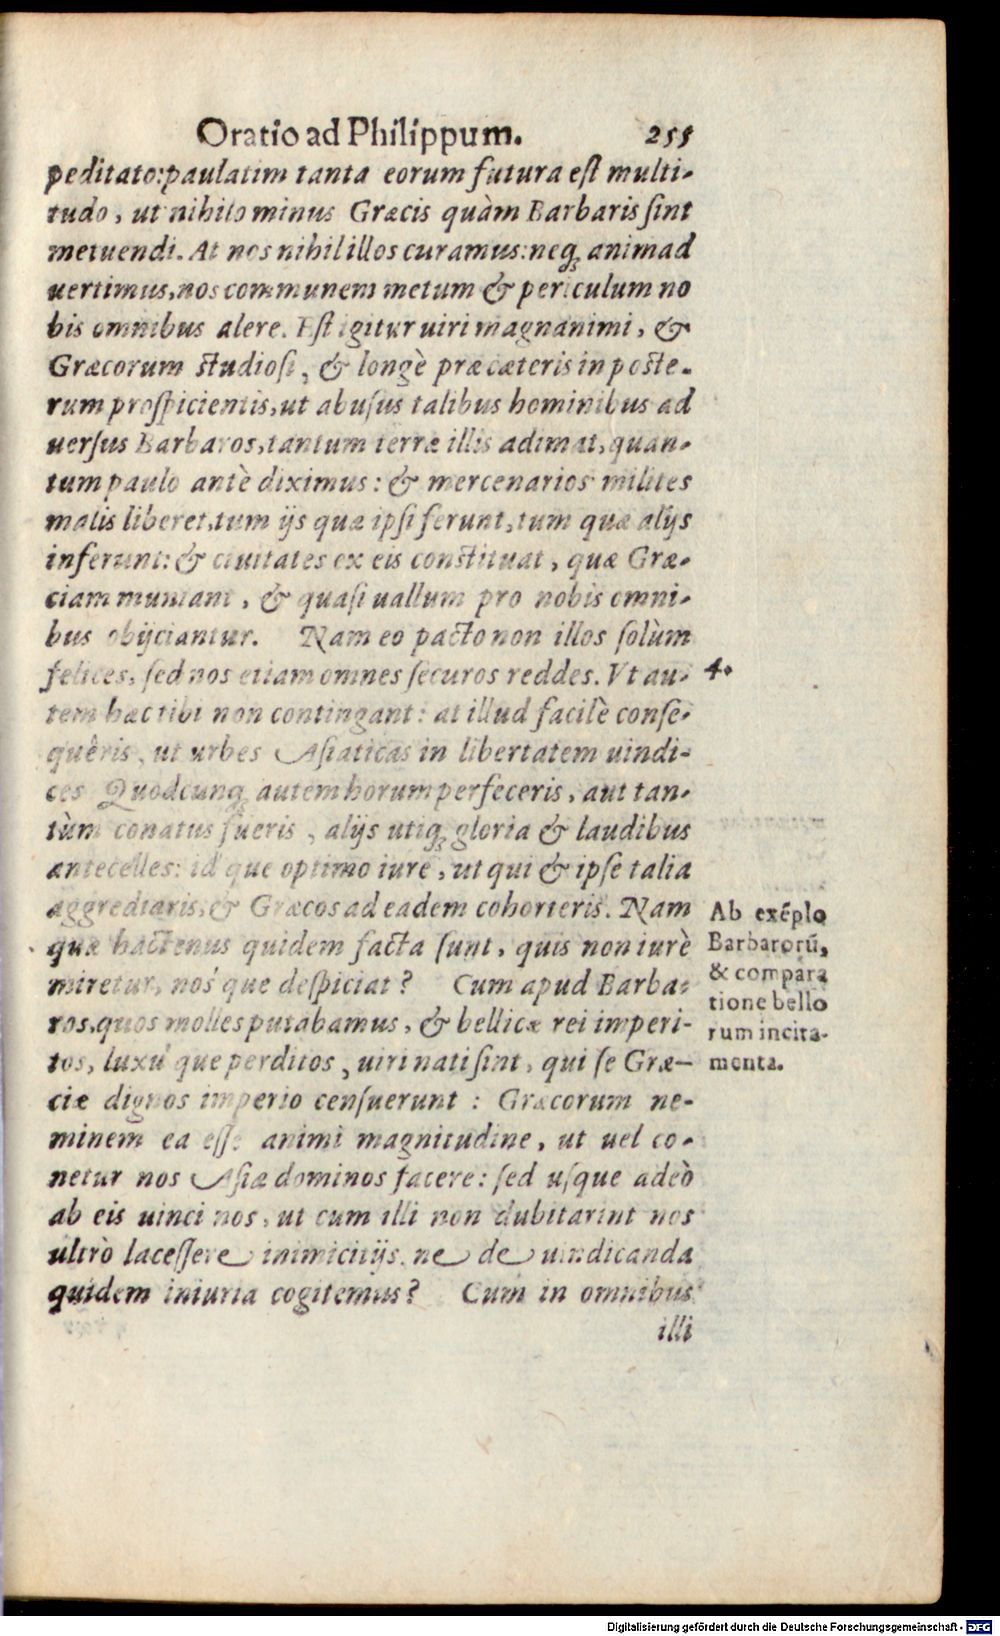 Oratio ad Philippum. 255
peditato: paulatim tanta eorum futura est multi-
tudo, ut nihilo minus Græcis quàm Barbaris sint
metuendi. At nos nihil illos curamus: neq; animad
uertimus, nos communem metum & periculum no
bis omnibus alere. Est igitur uiri magnanimi, &
Græcorum studiosi, & longè præ cæteris in poste-
rum prospicientis, ut abusus talibus hominibus ad
uersus Barbaros, tantum terræ illis adimat, quan-
tum paulo antè diximus: & mercenarios milites
malis liberet, tum ijs quæ ipsi ferunt, tum quæ alijs
inferunt: & ciuitates ex eis constituat, quæ Græ-
ciam muniant, & quasi uallum pro nobis omni-
bus obijciantur. Nam eo pacto non illos solùm
felices, sed nos etiam omnes securos reddes. Vt au- 4.
tem hæc tibi non contingant: at illud facilè conse-
quêris, ut urbes Asiaticas in libertatem uindi-
ces Quodcunq; autem horum perfeceris, aut tan-
tùm conatus fueris, alijs utiq; gloria & laudibus
antecelles: id que optimo iure, ut qui & ipse talia
aggrediaris, & Græcos ad eadem cohorteris. Nam
quæ hactenus quidem facta sunt, quis non iurè
miretur, nos que despiciat? Cum apud Barba-
ros, quos molles putabamus, & bellicæ rei imperi-
tos, luxu que perditos, uiri nati sint, qui se Græ-
ciæ dignos imperio censuerunt: Græcorum ne-
minem ea esse animi magnitudine, ut uel co-
netur nos Asiæ dominos facere: sed usque adeò
ab eis uinci nos, ut cum illi non dubitarint nos
ultrò lacessere inimicitijs, ne de uindicanda
quidem iniuria cogitemus? Cum in omnibus
illi
Ab exẽplo
Barbarorũ,
& compara
tione bello
rum incita-
menta.
Digitalisierung gefördert durch die Deutsche Forschungsgemeinschaft - DFG